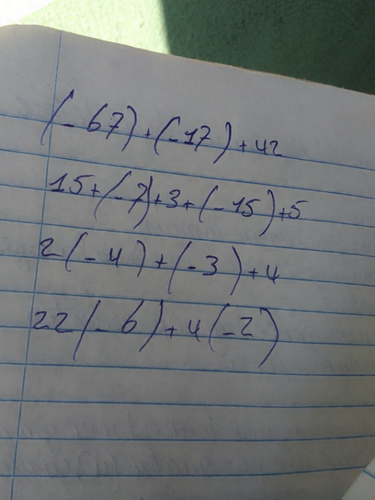 (-67)+(-17)+42
15+(-7)+3+(-15)+5
2(-4)+(-3)+4
22(-6)+4(-2)